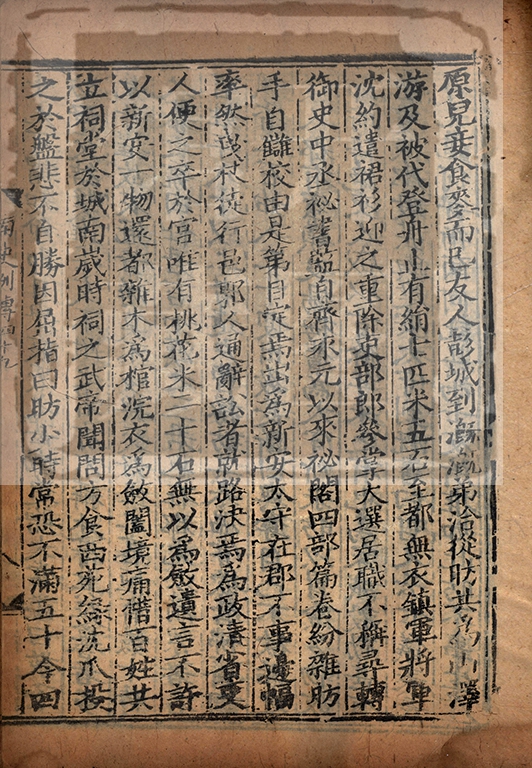 原兒妾食麥而已友人彭城到溉溉弟洽從昉共爲山澤
游及被代登舟止有絹七匹米五石至都無衣鎮軍將軍
沈約遣裙衫迎之重除吏部郎參掌大選居職不稱尋轉
御史中丞祕書監自齊永元以來祕閣四部篇卷紛雜昉
手自讎校由是篇目定焉出爲新安太守在郡不事邊幅
率然曳杖徒行邑郭人通辭訟者就路決焉爲政清省吏
人便之卒於官唯有桃花米二十石無以爲斂遺言不許
以新安一物還都雜木爲棺浣衣爲斂闔境痛惜百姓共
立祠堂於城南歲時祠之武帝聞問方食西苑綠沈瓜投
之於盤悲不自勝因屈指曰昉少時常恐不滿五十今四
南史列傳四十九